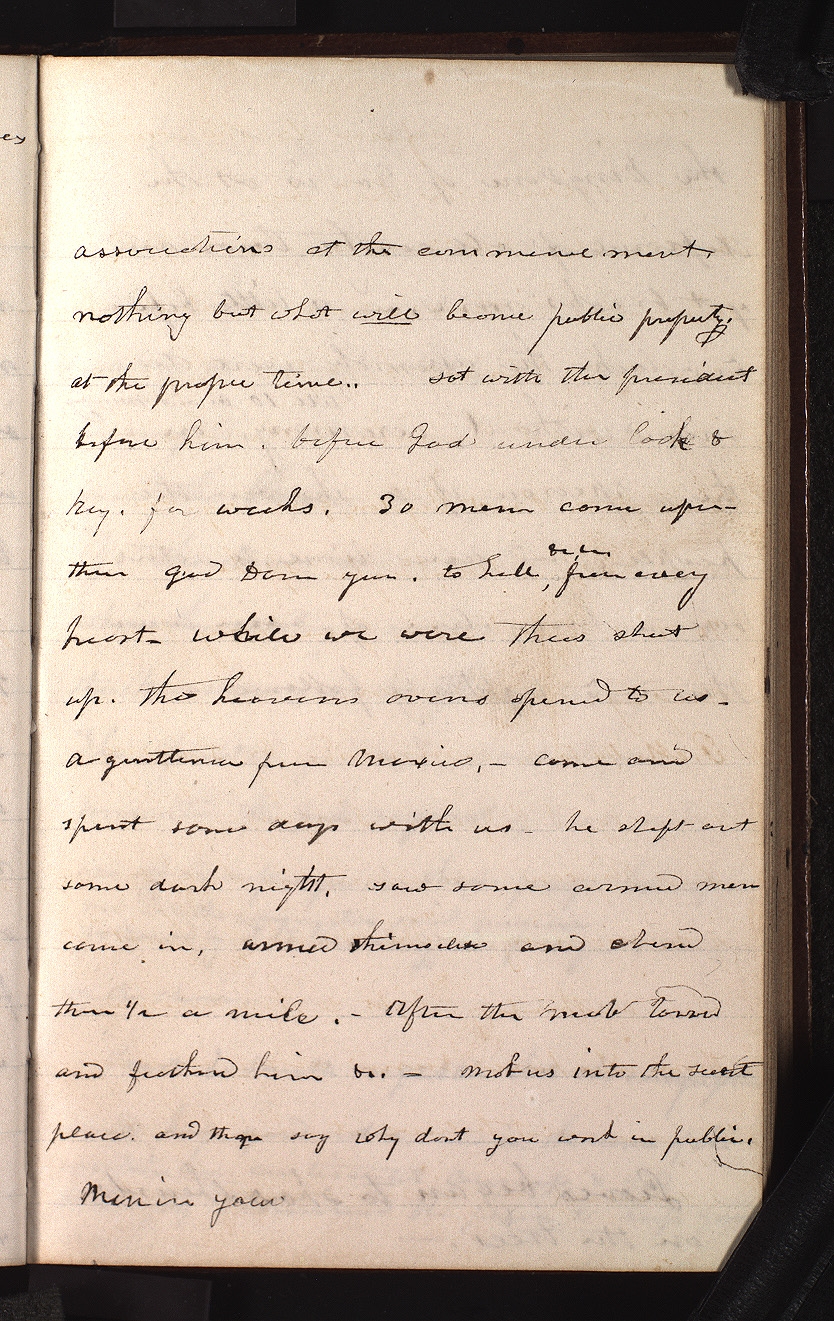 es
associations at the commencement.
nothing but what will become public property.
at the proper time.. sat with the president
before him. before God under lock &
key. for weeks. 30 men come upon
them god Dam you. to hell, from every
heart— while we were thus shut
up. the heavens ovens opened to us—
a gentleman from Mexico,— come and
spent some days with us— he slept out
some dark night. saw some armed men
come in, armed themselves and chased
them 1/2 a mile.— After the mob tarred
and feathered him &c.— mob us into the secret
place. and then say why dont you work in public.
Men in your